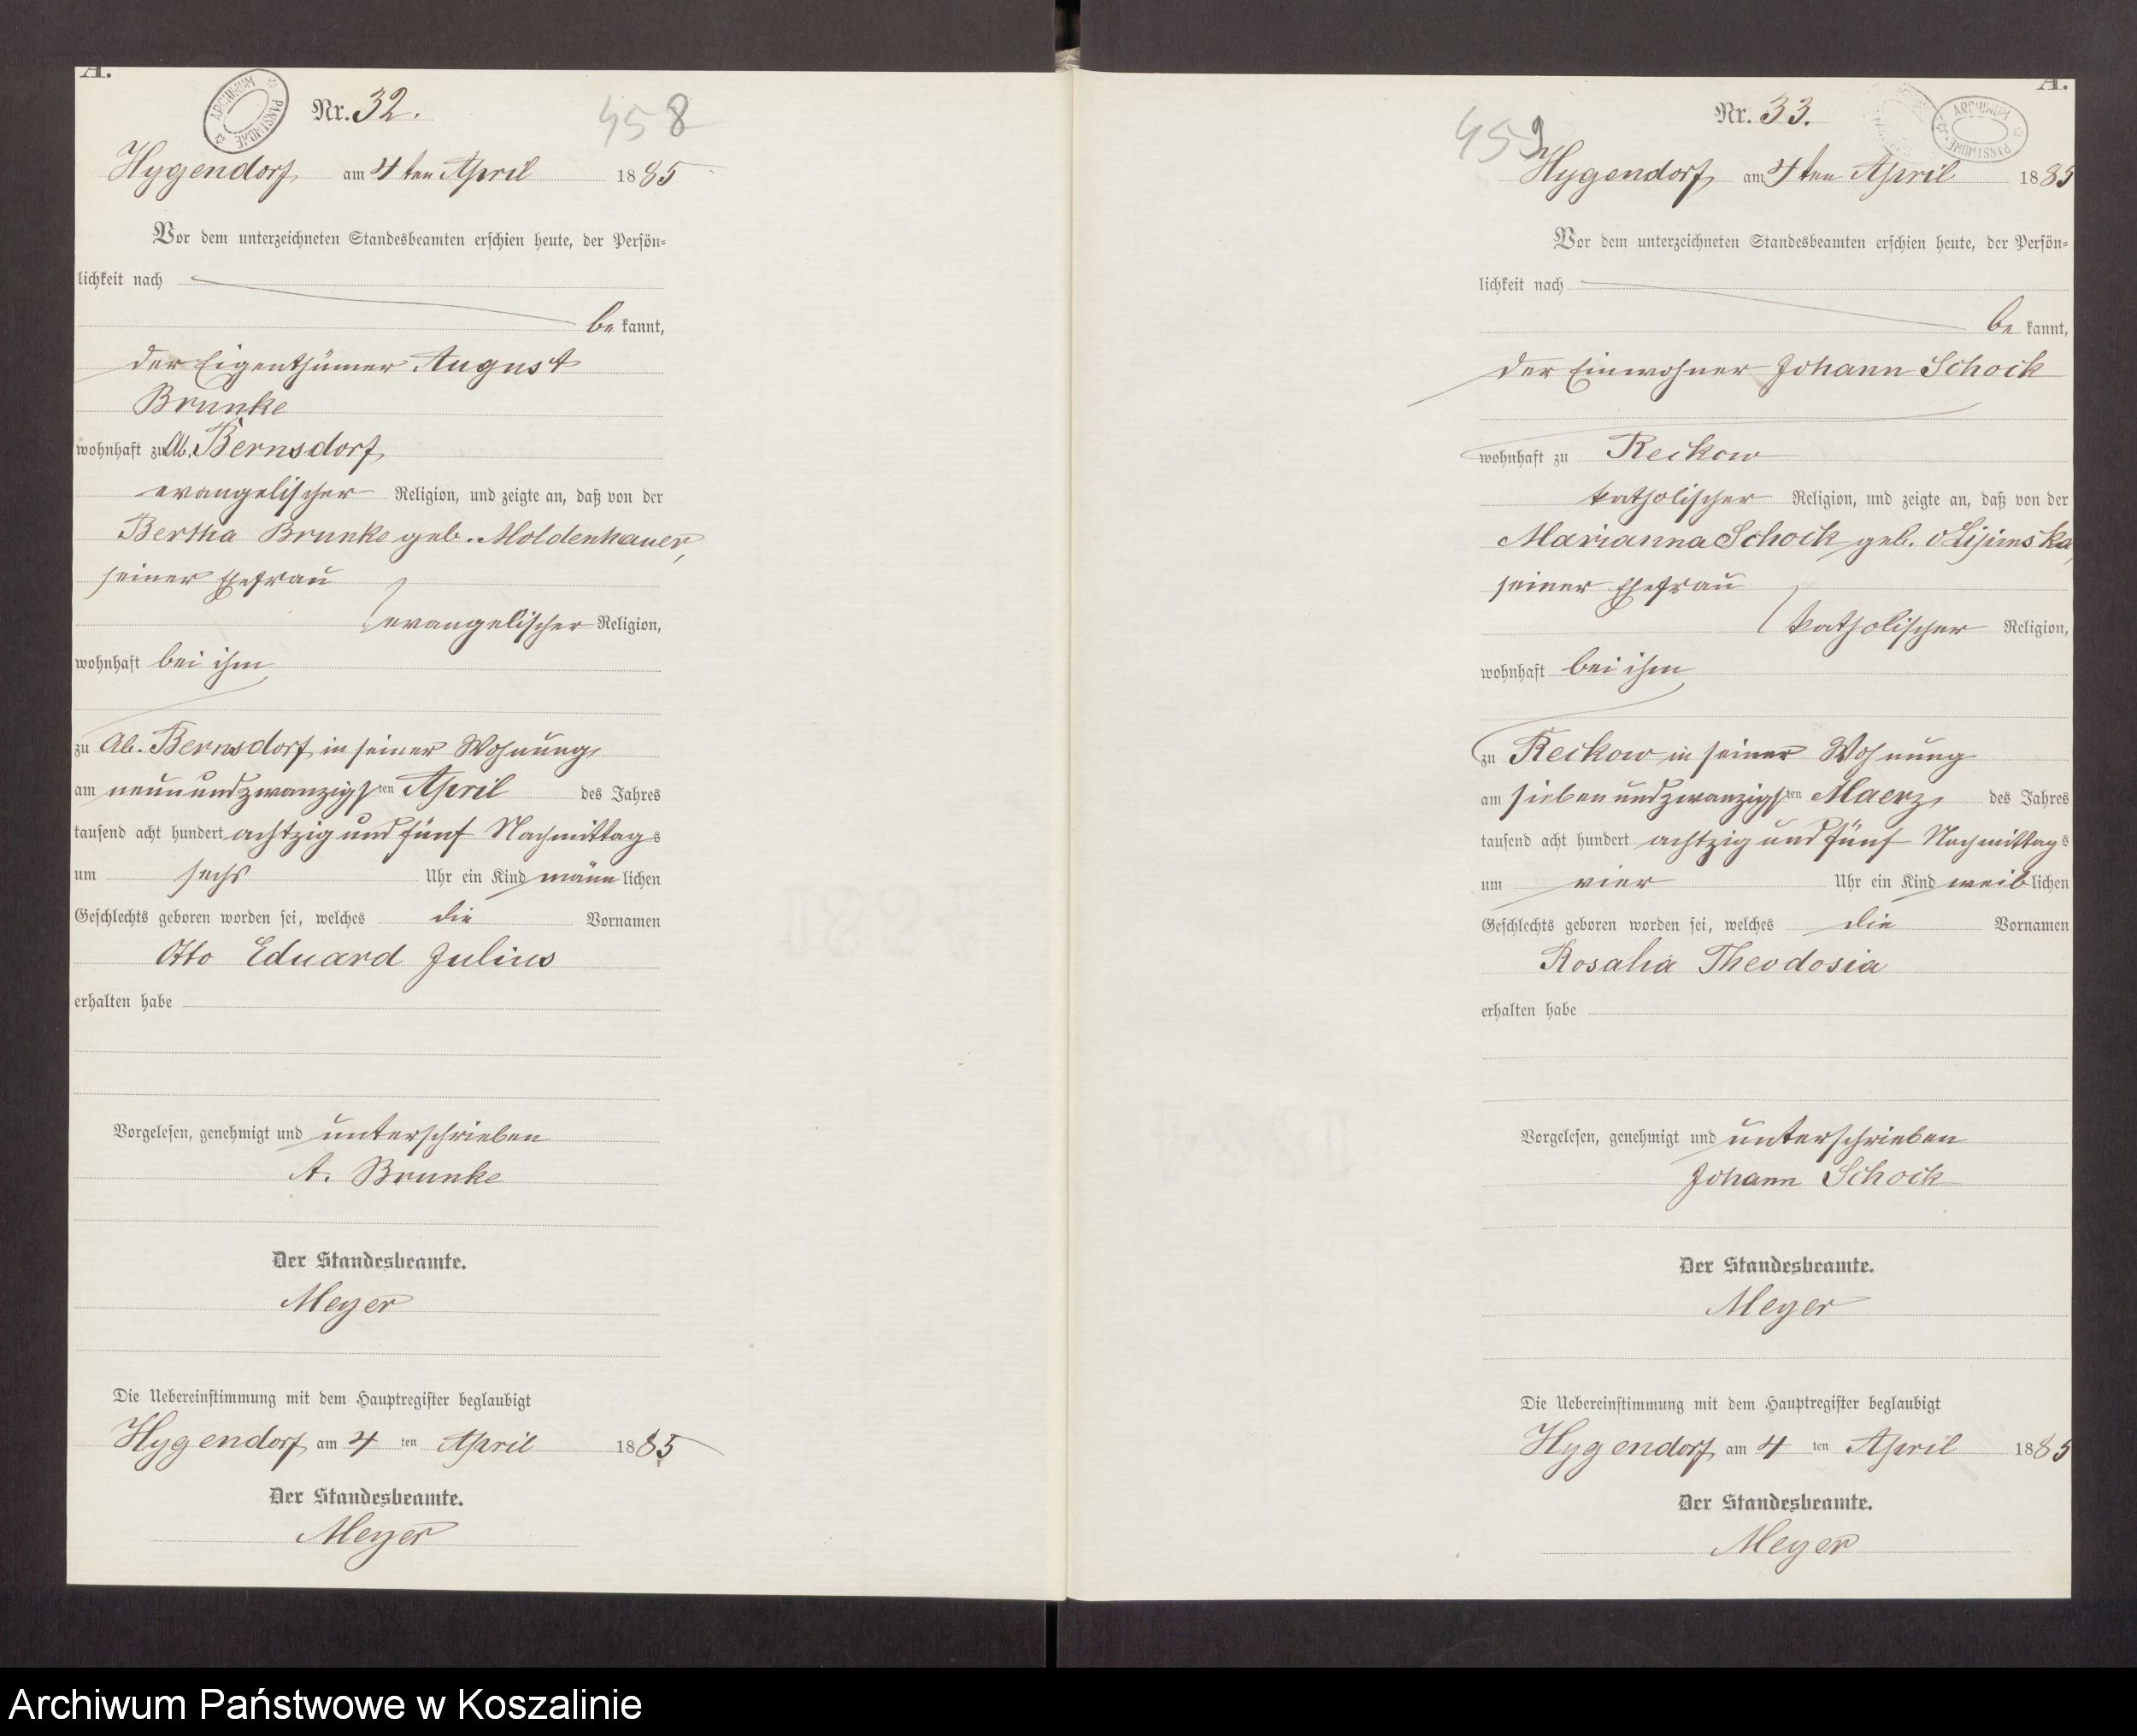 A.
ARCHIWUM PAŃSTWOWE
Nr. 32.
458
Hygendorf, am 4ten April 1885
Vor dem unterzeichneten Standesbeamten erschien heute, der Persön-
lichkeit nach
bekannt,
der Eigenthümer August
Brunke
wohnhaft zu Ab. Bernsdorf,
evangelischer Religion, und zeigte an, daß von der
Bertha Brunke geb. Moldenhauer,
seiner Ehefrau
evangelischer Religion,
wohnhaft bei ihm
zu Ab. Bernsdorf, in seiner Wohnung,
am neunundzwanzigsten April des Jahres
tausend acht hundert achtzig und fünf Nachmittags
um sechs Uhr ein Kind männlichen
Geschlechts geboren worden sei, welches die Vornamen
Otto Eduard Julius
erhalten habe
Vorgelesen, genehmigt und unterschrieben
A. Brunke
Der Standesbeamte.
Meyer
Die Uebereinstimmung mit dem Hauptregister beglaubigt
Hygendorf, am 4 ten April 1885
Der Standesbeamte.
Meyer
A.
ARCHIWUM PAŃSTWOWE
Nr. 33.
459
Hygendorf, am 4ten April 1885
Vor dem unterzeichneten Standesbeamten erschien heute, der Persön-
lichkeit nach
bekannt,
der Einwohner Johann Schock
wohnhaft zu Reckow
katholischer Religion, und zeigte an, daß von der
Marianna Schock geb.
seiner Ehefrau
katholischer Religion,
wohnhaft bei ihm
zu Reckow in seiner Wohnung
am siebenundzwanzigsten Maerz, des Jahres
tausend acht hundert achtzig und fünf Nachmittags
um vier Uhr ein Kind weiblichen
Geschlechts geboren worden sei, welches die Vornamen
Rosalia Theodosia
erhalten habe
Vorgelesen, genehmigt und unterschrieben
Johann Schock
Der Standesbeamte.
Meyer
Die Uebereinstimmung mit dem Hauptregister beglaubigt
Hygendorf, am 4 ten April 1885
Der Standesbeamte.
Meyer
Archiwum Państwowe w Koszalinie